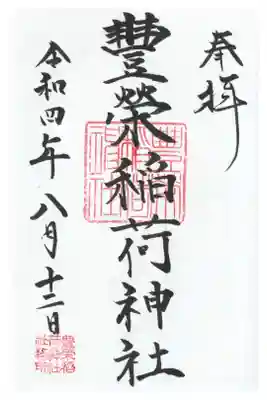 奉拝
豐榮稲荷神社
令和四年八月十二日